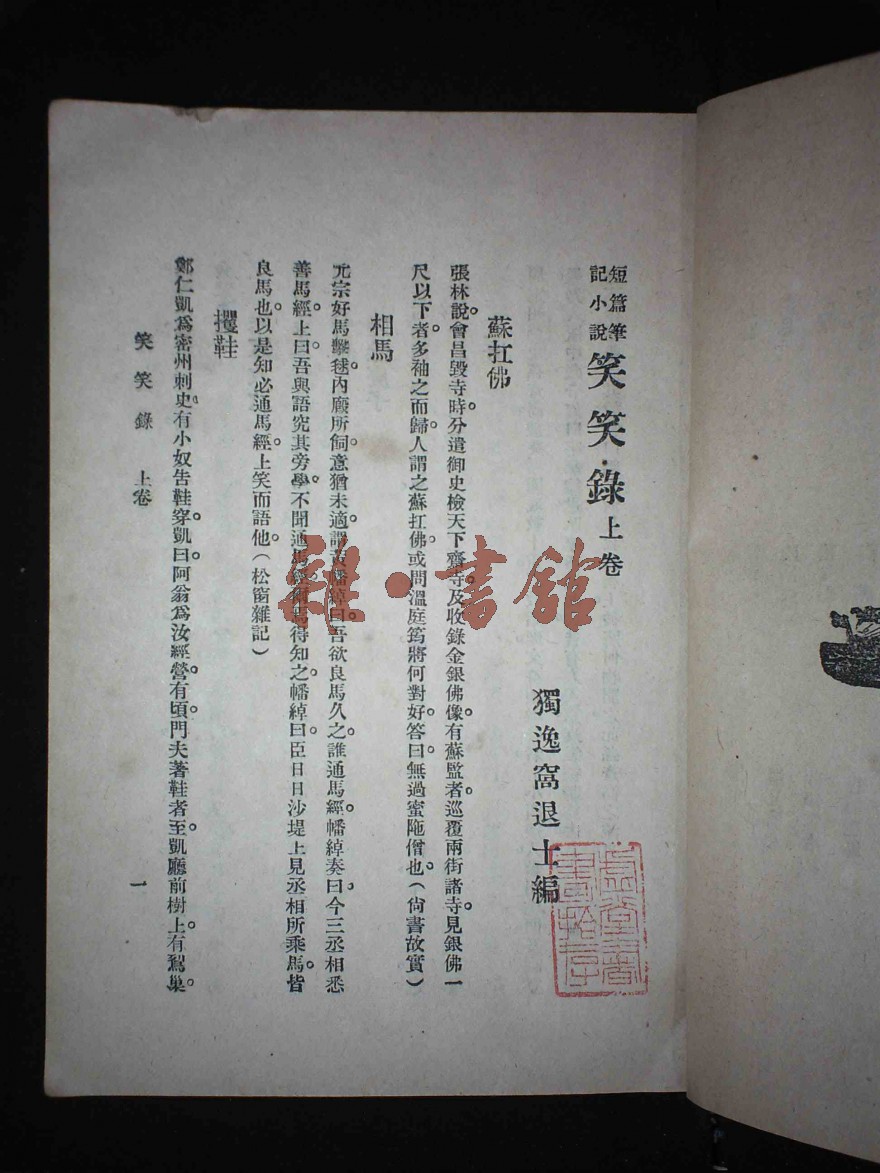 短篇筆記小說 笑笑錄 上卷
獨逸窩退士編
蘇扛佛
張林說。會昌毀寺時分遣御史檢天下齋寺。及收錄金銀佛像有蘇監者巡覆兩街諸寺。見銀佛一
尺以下者。多袖之而歸。人謂之蘇扛佛。或問溫庭筠將何對好。答曰。無過蜜陁僧也。(尙書故實)
相馬
元宗好馬擊毬。內廐所飼。意猶未適。謂黃幡綽曰。吾欲良馬久之。誰通馬經。幡綽奏曰。今三丞相悉
善馬經。上曰。吾與語究其旁學。不聞通馬經。何得知之。幡綽曰。臣日日沙堤上見丞相所乘馬。皆
良馬也。以是知必通馬經。上笑而語他。(松窗雜記)
攫鞋
鄭仁凱爲密州刺史。有小奴告鞋穿。凱曰。阿翁爲汝經營。有頃。門夫著鞋者至。凱廳前樹上。有鴷巢。
笑笑錄 上卷
一
雜·書館